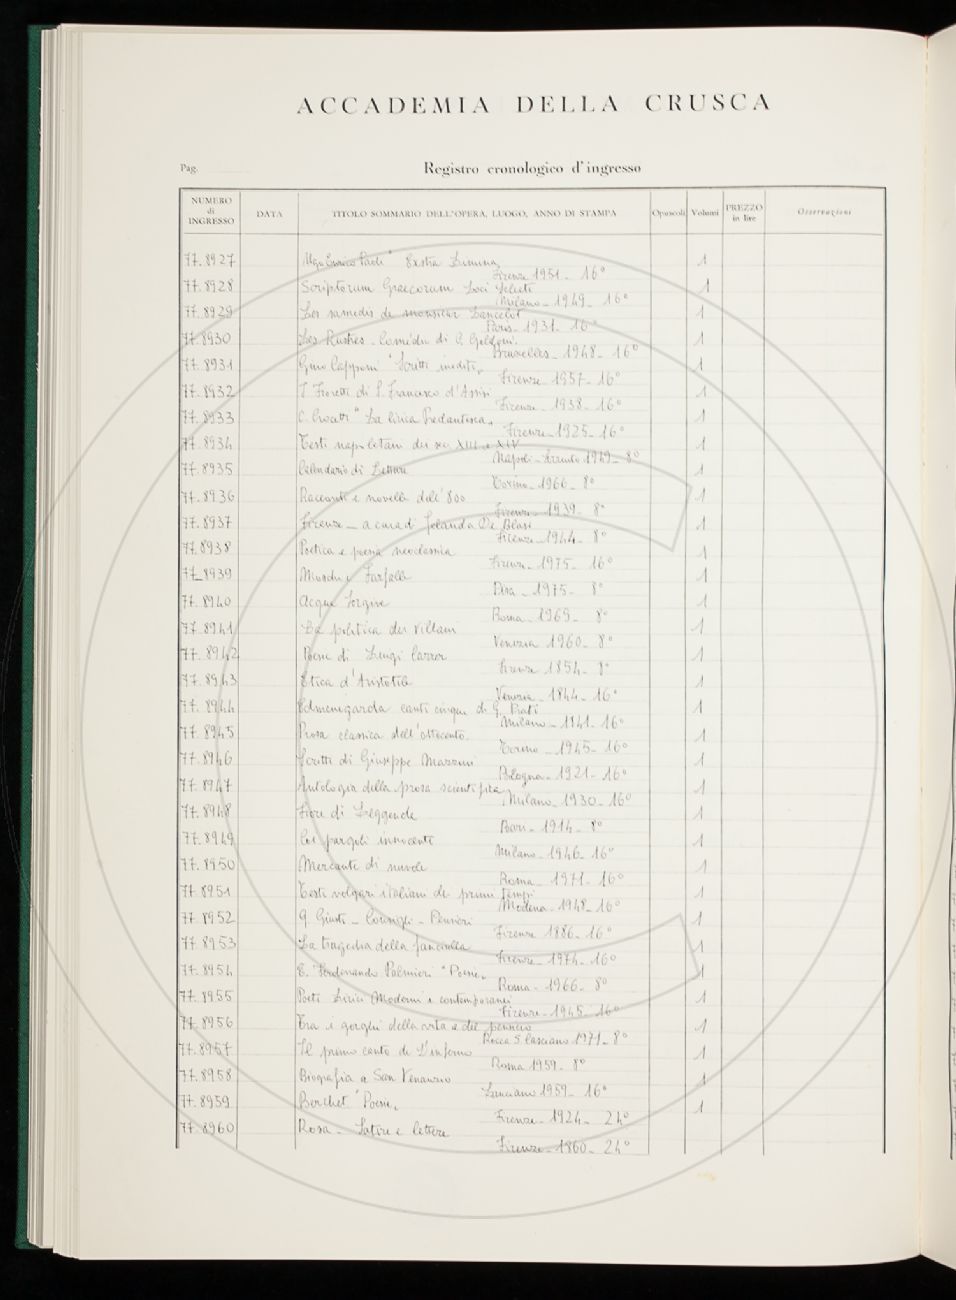 ACCADEMIA DELLA CRUSCA
Pag.
Registro cronologico d'ingresso
NUMERO di INGRESSO DATA TITOLO SOMMARIO DELL'OPERA, LUOGO, ANNO DI STAMPA Opuscoli Volumi PREZZO in lire Osservazioni
77.8927 Ugo Enrico Paoli " Extra 1
Firenze 1951 - 16°
77.8928 Scriptorum Graecorum Loci Selecti 1
Milano - 1949 - 16°
77.8929 Les de monsieur Lancelot 1
Paris - 1931 - 16°
77.8930 Les Rustres - Comédie di C. Goldoni. 1
Bruxelles - 1948 - 16°
77.8931 Gino Capponi "Scritti inediti" 1
Firenze - 1957 - 16°
77.8932 I Fioretti di S. Francesco d'Assisi 1
Firenze - 1938 - 16°
77.8933 C. "La lirica Pedantesca" 1
Firenze - 1925 - 16°
77.8934 Testi napoletani dei sec XIII e XIV 1
Napoli - 1949 - 8°
77.8935 Calendario di Letture 1
Torino - 1966 - 8°
77.8936 Racconti e novelle dell'800 1
Firenze - 1939 - 8°
77.8937 Firenze - a cura di Jolanda De Blasi 1
Firenze - 1944 - 8°
77.8938 Poetica e poesia neoclassica 1
Firenze - 1975 - 16°
77.8939 Mosche e Farfalle 1
Pisa - 1975 - 8°
77.8940 Acque Sorgive 1
Roma - 1969 - 8°
77.8941 La politica dei Villani 1
Venezia - 1960 - 8°
77.8942 Poesie di Luigi Carrer 1
Firenze - 1854 - 8°
77.8943 Etica d'Aristotile 1
Venezia - 1844 - 16°
77.8944 Edmenegarda canti cinque di G. Prati 1
Milano - 1841 - 16°
77.8945 Prosa classica dell'ottocento 1
Torino - 1945 - 16°
77.8946 Scritti di Giuseppe Mazzini 1
Bologna - 1921 - 16°
77.8947 Antologia della prosa scientifica 1
Milano - 1930 - 16°
77.8948 Fiore di Leggende 1
Bari - 1914 - 8°
77.8949 Coi pargoli innocenti 1
Milano - 1946 - 16°
77.8950 Mercante di nuvole 1
Roma - 1971 - 16°
77.8951 Testi volgari italiani dei primi tempi 1
Modena - 1948 - 16°
77.8952 G. Giusti - Consigli - Pensieri 1
Firenze 1886 - 16°
77.8953 La tragedia della fanciulla 1
Firenze - 1974 - 16°
77.8954 E. Ferdinando Palmieri "Poesie" 1
Roma - 1966 - 8°
77.8955 Poeti Lirici Moderni e contemporanei 1
Firenze - 1945 - 16°
77.8956 Tra i gorghi della vita e del pensiero 1
Rocca S. Casciano 1971 - 8°
77.8957 Il primo canto de L'inferno 1
Roma 1959 - 8°
77.8958 Biografia a San Venanzio 1
Lanciano 1959 - 16°
77.8959 Berchet "Poesie" 1
Firenze - 1924 - 24°
77.8960 Rosa - Satire e lettere
Firenze - 1860 - 24°